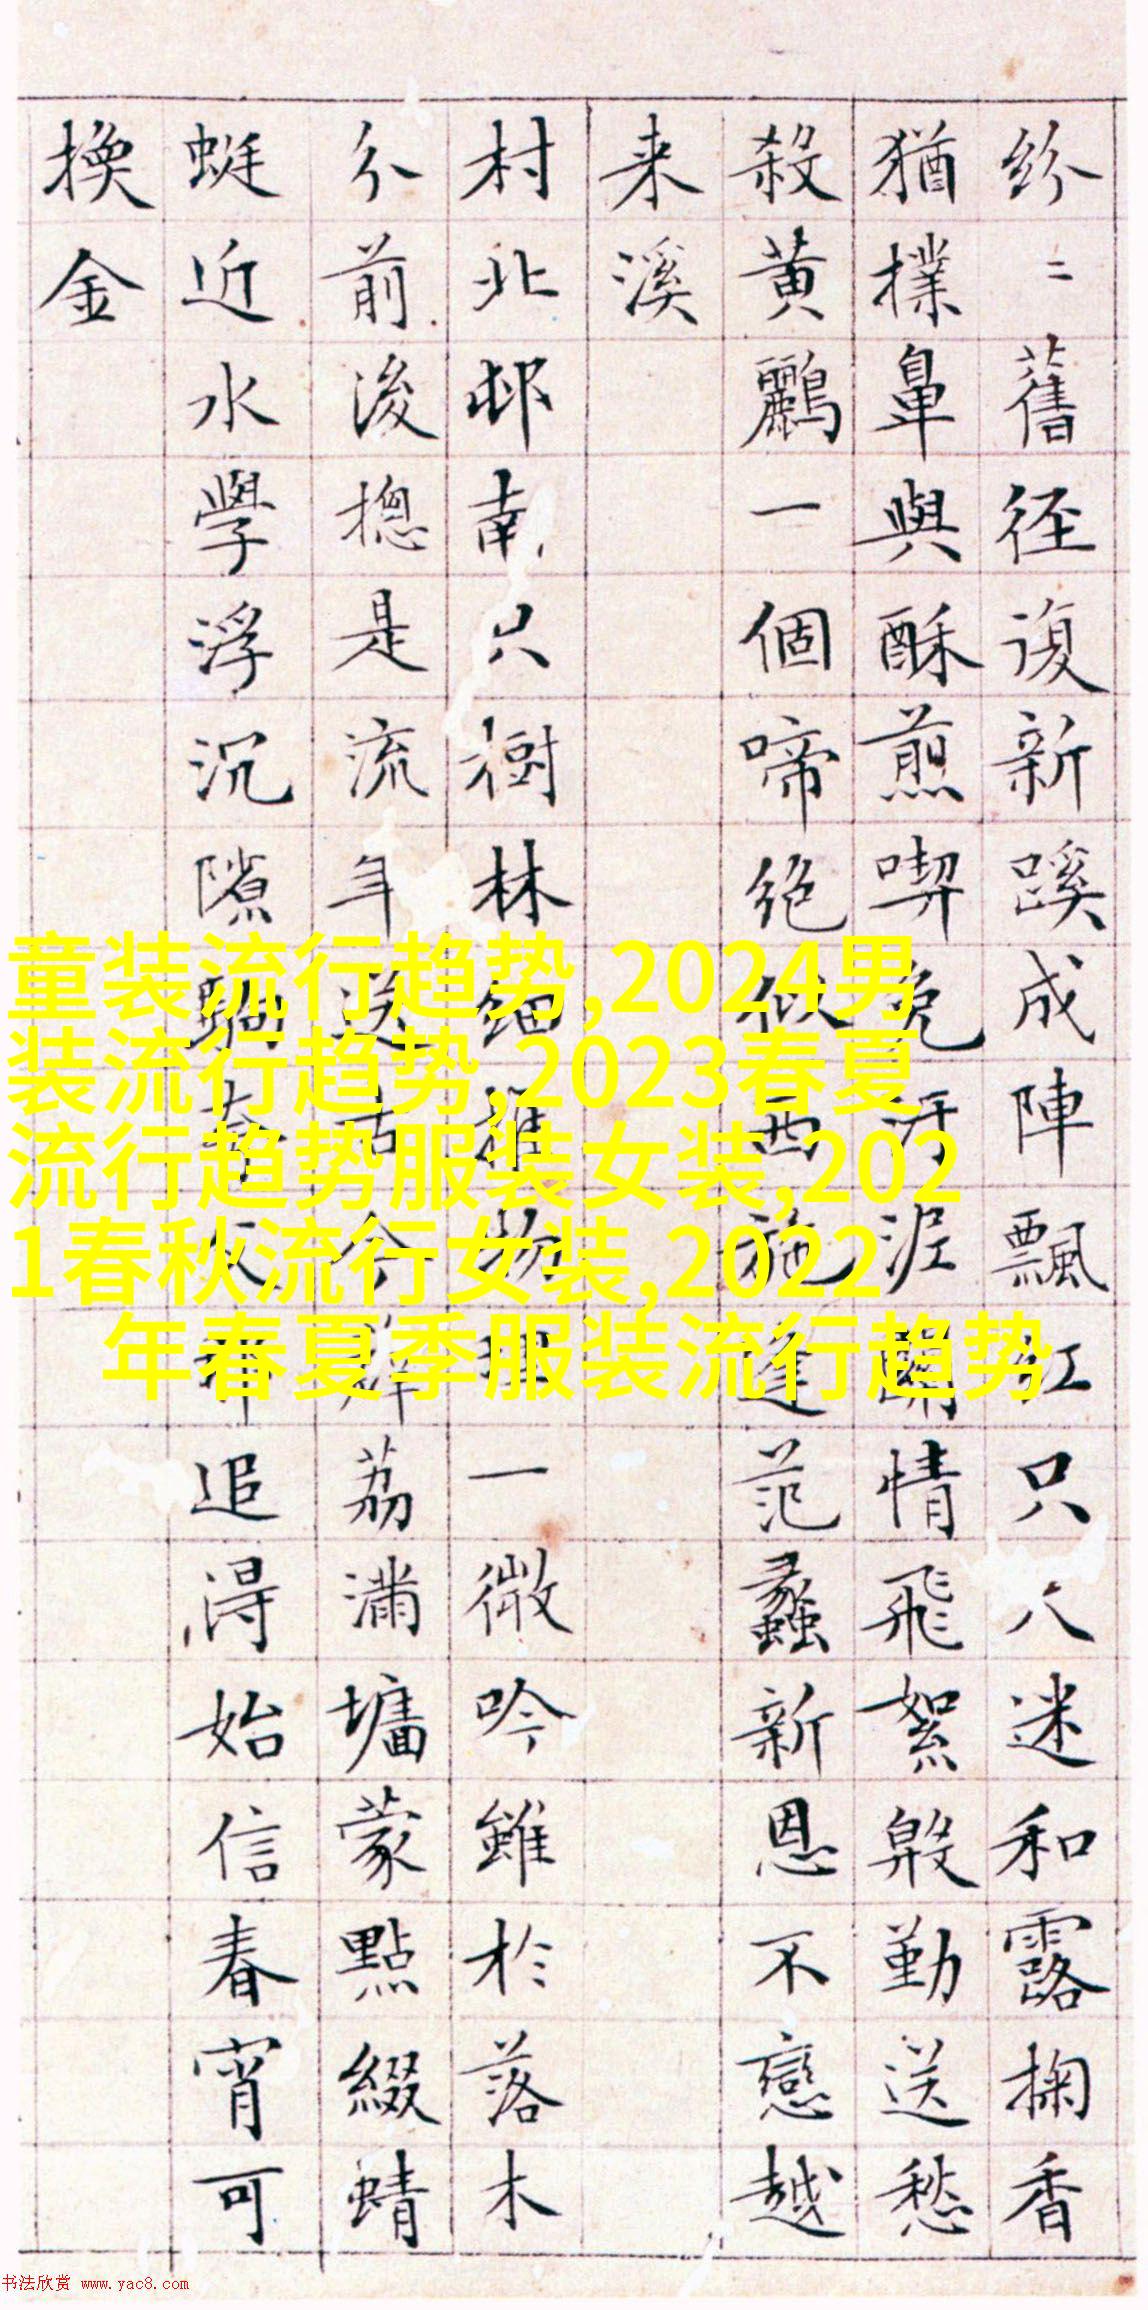 紛〻舊徑復新蹊成陣飄紅只迷和露掬香
猶撲鼻與酥煎喫免汙泥關情飛絮殷勤送愁
殺黄鸝一個啼絶似西施逢范蠡新恩不戀越
来溪
村北邨南只樹林細推物理一微吟雖於落木
分前後揔是流年送古今荔滿墻蒙點綴蜻
蜓近水學浮沉隙駒奔追得始信春宵可
換金
童装流行趋势,2024男
装流行趋势,2023春夏
流行趋势服装女装,202
1春秋流行女装,2022
年春夏季服装流行趋势
书法欣赏 www.yac8.com